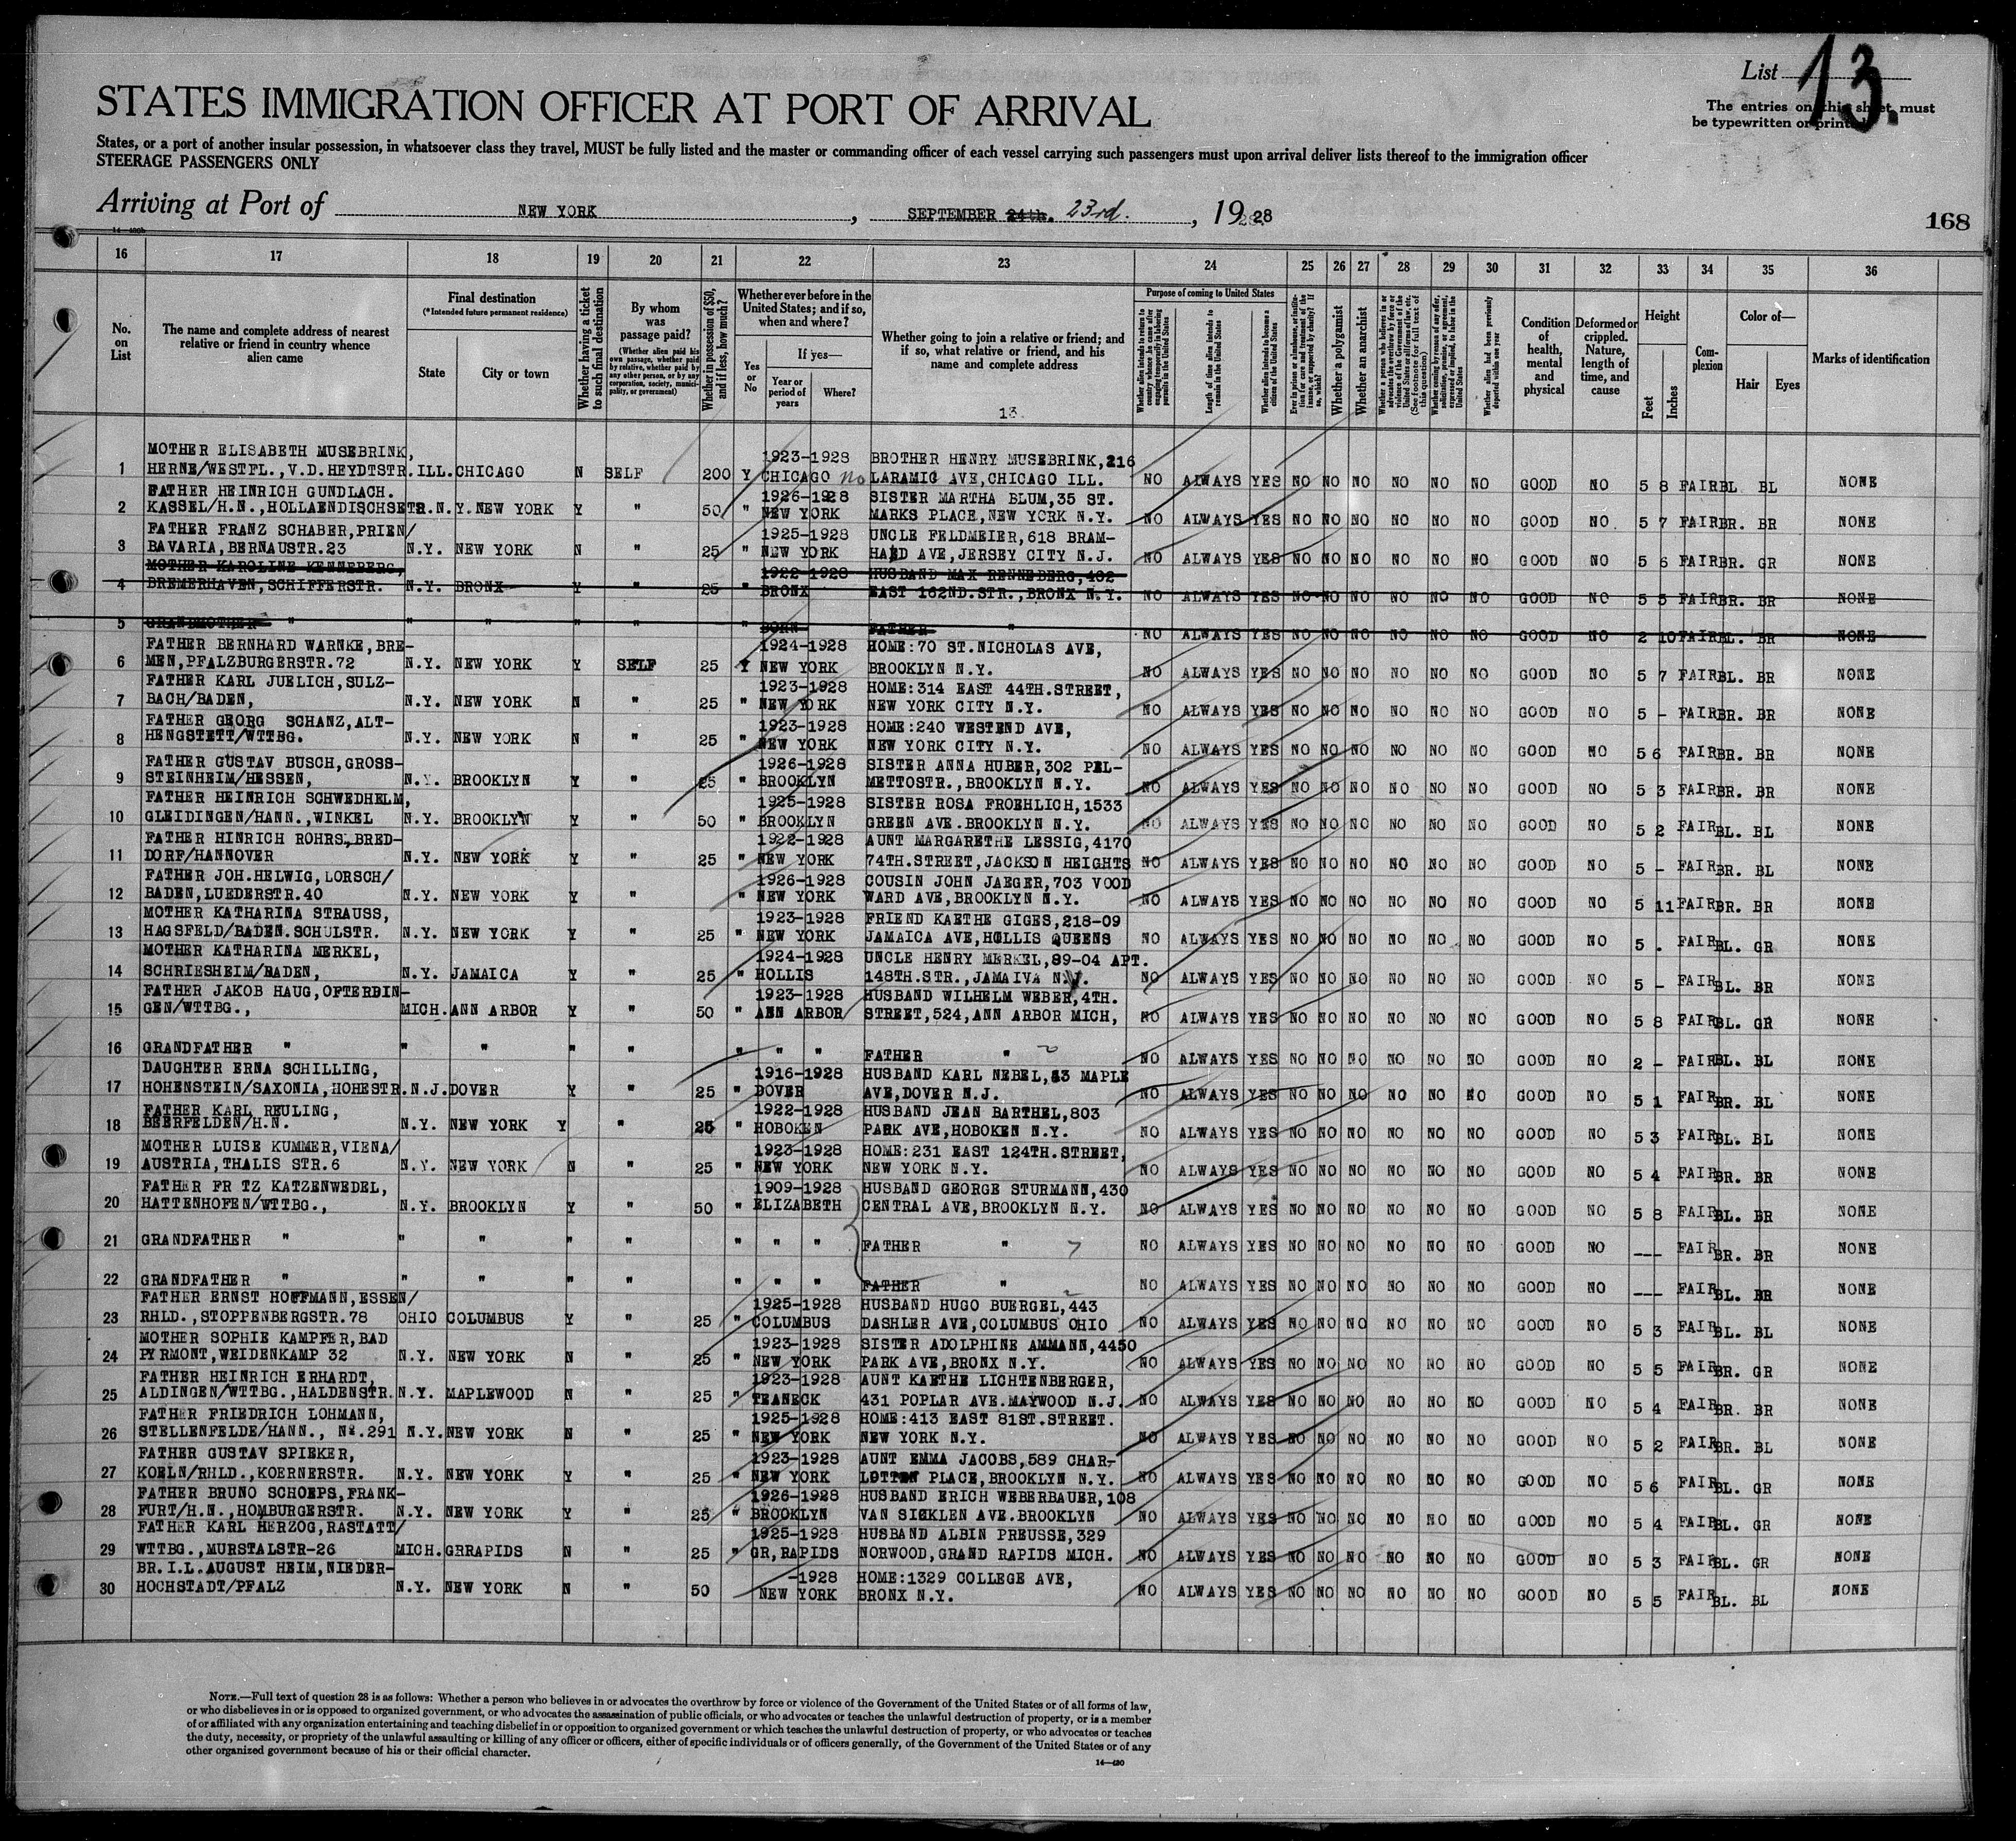 List 13.
The entries on this sheet must
be typewritten or printed
STATES IMMIGRATION OFFICER AT PORT OF ARRIVAL
States, or a port of another insular possession, in whatsoever class they travel, MUST be fully listed and the master or commanding officer of each vessel carrying such passengers must upon arrival deliver lists thereof to the immigration officer
STEERAGE PASSENGERS ONLY
Arriving at Port of NEW YORK, SEPTEMBER 24th. 23rd., 1928
168
16 17 18 19 20 21 22 23 24 25 26 27 28 29 30 31 32 33 34 35 36
No. on List
The name and complete address of nearest relative or friend in country whence alien came
Final destination
(*Intended future permanent residence)
State
City or town
Whether having a ticket to such final destination
By whom was passage paid?
(Whether alien paid his own passage, whether paid by relative, whether paid by any other person, or by any corporation, society, municipality, or government)
Whether in possession of $50, and if less, how much?
Whether ever before in the United States; and if so, when and where?
Yes or No
If yes—
Year or period of years
Where?
Whether going to join a relative or friend; and if so, what relative or friend, and his name and complete address
13.
Purpose of coming to United States
Length of time alien intends to remain in the United States
Whether alien intends to become a citizen of the United States
Whether a polygamist
Whether an anarchist
(See footnote for full text of this question)
Whether alien had been previously deported within one year
Condition of health, mental and physical
Deformed or crippled. Nature, length of time, and cause
Height
Feet
Inches
Complexion
Color of—
Hair
Eyes
Marks of identification
MOTHER ELISABETH MUSEBRINK, 1923-1928 BROTHER HENRY MUSEBRINK,216
1 HERNE/WESTFL.,V.D.HEYDTSTR. ILL. CHICAGO N SELF 200 Y CHICAGO no LARAMIG AVE,CHICAGO ILL. NO ALWAYS YES NO NO NO NO NO NO GOOD NO 5 8 FAIR BL BL NONE
FATHER HEINRICH GUNDLACH. 1926-1928 SISTER MARTHA BLUM,35 ST.
2 KASSEL/H.N.,HOLLAENDISCHSETR. N.Y. NEW YORK Y " 50 " NEW YORK MARKS PLACE,NEW YORK N.Y. NO ALWAYS YES NO NO NO NO NO NO GOOD NO 5 7 FAIR BR. BR NONE
FATHER FRANZ SCHABER,PRIEN/ 1925-1928 UNCLE FELDMEIER,618 BRAM-
3 BAVARIA,BERNAUSTR.23 N.Y. NEW YORK N " 25 " NEW YORK HAND AVE,JERSEY CITY N.J. NO ALWAYS YES NO NO NO NO NO NO GOOD NO 5 6 FAIR BR. GR NONE
MOTHER KAROLINE KENNEBERG, 1922-1928 HUSBAND MAX RENNEBERG,402
4 BREMERHAVEN,SCHIFFERSTR. N.Y. BRONX Y " 25 " BRONX EAST 162ND.STR.,BRONX N.Y. NO ALWAYS YES NO NO NO NO NO NO GOOD NO 5 5 FAIR BR. BR NONE
5 GRANDMOTHER " " " " " " BORN FATHER " NO ALWAYS YES NO NO NO NO NO NO GOOD NO 2 10 FAIR BL. BR NONE
FATHER BERNHARD WARNKE,BRE- 1924-1928 HOME:70 ST.NICHOLAS AVE,
6 MEN,PFALZBURGERSTR.72 N.Y. NEW YORK Y SELF 25 Y NEW YORK BROOKLYN N.Y. NO ALWAYS YES NO NO NO NO NO NO GOOD NO 5 7 FAIR BL. BR NONE
FATHER KARL JUELICH,SULZ- 1923-1928 HOME:314 EAST 44TH.STREET,
7 BACH/BADEN, N.Y. NEW YORK N " 25 " NEW YORK NEW YORK CITY N.Y. NO ALWAYS YES NO NO NO NO NO NO GOOD NO 5 - FAIR BR. BR NONE
FATHER GEORG SCHANZ,ALT- 1923-1928 HOME:240 WESTEND AVE,
8 HENGSTETT/WTTBG. N.Y. NEW YORK N " 25 " NEW YORK NEW YORK CITY N.Y. NO ALWAYS YES NO NO NO NO NO NO GOOD NO 5 6 FAIR BR. BR NONE
FATHER GUSTAV BUSCH,GROSS- 1926-1928 SISTER ANNA HUBER,302 PEL-
9 STEINHEIM/HESSEN, N.Y. BROOKLYN Y " 25 " BROOKLYN METTOSTR.,BROOKLYN N.Y. NO ALWAYS YES NO NO NO NO NO NO GOOD NO 5 3 FAIR BR. BR NONE
FATHER HEINRICH SCHWEDHELM, 1925-1928 SISTER ROSA FROEHLICH,1533
10 GLEIDINGEN/HANN.,WINKEL N.Y. BROOKLYN Y " 50 " BROOKLYN GREEN AVE.BROOKLYN N.Y. NO ALWAYS YES NO NO NO NO NO NO GOOD NO 5 2 FAIR BL. BL NONE
FATHER HINRICH ROHRS,BRED- 1922-1928 AUNT MARGARETHE LESSIG,4170
11 DORF/HANNOVER N.Y. NEW YORK Y " 25 " NEW YORK 74TH.STREET,JACKSON HEIGHTS NO ALWAYS YES NO NO NO NO NO NO GOOD NO 5 - FAIR BR. BL NONE
FATHER JOH.HELWIG,LORSCH/ 1926-1928 COUSIN JOHN JAEGER,703 VOOD
12 BADEN,LUEDERSTR.40 N.Y. NEW YORK Y " " NEW YORK WARD AVE,BROOKLYN N.Y. NO ALWAYS YES NO NO NO NO NO NO GOOD NO 5 11 FAIR BR. BR NONE
MOTHER KATHARINA STRAUSS, 1923-1928 FRIEND KAETHE GIGES,218-09
13 HAGSFELD/BADEN.SCHULSTR. N.Y. NEW YORK Y " 25 " NEW YORK JAMAICA AVE,HOLLIS QUEENS NO ALWAYS YES NO NO NO NO NO NO GOOD NO 5 . FAIR BL. GR NONE
MOTHER KATHARINA MERKEL, 1924-1928 UNCLE HENRY MERKEL,89-04 APT.
14 SCHRIESHEIM/BADEN, N.Y. JAMAICA Y " 25 " HOLLIS 148TH.STR.,JAMAIVA N.Y. NO ALWAYS YES NO NO NO NO NO NO GOOD NO 5 - FAIR BL. BR NONE
FATHER JAKOB HAUG,OFTERDIN- 1923-1928 HUSBAND WILHELM WEBER,4TH.
15 GEN/WTTBG., MICH. ANN ARBOR Y " 50 " ANN ARBOR STREET,524,ANN ARBOR MICH, NO ALWAYS YES NO NO NO NO NO NO GOOD NO 5 8 FAIR BL. GR NONE
16 GRANDFATHER " " " " " " " " FATHER " NO ALWAYS YES NO NO NO NO NO NO GOOD NO 2 - FAIR BL. BL NONE
DAUGHTER ERNA SCHILLING, 1916-1928 HUSBAND KARL NEBEL,43 MAPLE
17 HOHENSTEIN/SAXONIA,HOHESTR. N.J. DOVER Y " 25 " DOVER AVE,DOVER N.J. NO ALWAYS YES NO NO NO NO NO NO GOOD NO 5 1 FAIR BR. BL NONE
FATHER KARL REULING, 1922-1928 HUSBAND JEAN BARTHEL,803
18 BEERFELDEN/H.N. N.Y. NEW YORK Y " 25 " HOBOKEN PARK AVE,HOBOKEN N.Y. NO ALWAYS YES NO NO NO NO NO NO GOOD NO 5 3 FAIR BL. BL NONE
MOTHER LUISE KUMMER,VIENA/ 1923-1928 HOME:231 EAST 124TH.STREET,
19 AUSTRIA,THALIS STR.6 N.Y. NEW YORK N " 25 " NEW YORK NEW YORK N.Y. NO ALWAYS YES NO NO NO NO NO NO GOOD NO 5 4 FAIR BR. BR NONE
FATHER FR TZ KATZENWEDEL, 1909-1928 HUSBAND GEORGE STURMANN,430
20 HATTENHOFEN/WTTBG., N.Y. BROOKLYN Y " 50 " ELIZABETH CENTRAL AVE,BROOKLYN N.Y. NO ALWAYS YES NO NO NO NO NO NO GOOD NO 5 8 FAIR BL. BR NONE
21 GRANDFATHER " " " " " " " " FATHER " NO ALWAYS YES NO NO NO NO NO NO GOOD NO --- FAIR BR. BR NONE
22 GRANDFATHER " " " " " " " " FATHER " NO ALWAYS YES NO NO NO NO NO NO GOOD NO --- FAIR BL. BR NONE
FATHER ERNST HOFFMANN,ESSEN/ 1925-1928 HUSBAND HUGO BUERGEL,443
23 RHLD.,STOPPENBERGSTR.78 OHIO COLUMBUS Y " 25 " COLUMBUS DASHLER AVE,COLUMBUS OHIO NO ALWAYS YES NO NO NO NO NO NO GOOD NO 5 3 FAIR BL. BL NONE
MOTHER SOPHIE KAMPFER,BAD 1923-1928 SISTER ADOLPHINE AMMANN,4450
24 PYRMONT,WEIDENKAMP 32 N.Y. NEW YORK N " 25 " NEW YORK PARK AVE,BRONX N.Y. NO ALWAYS YES NO NO NO NO NO NO GOOD NO 5 5 FAIR BR. GR NONE
FATHER HEINRICH ERHARDT, 1923-1928 AUNT KAETHE LICHTENBERGER,
25 ALDINGEN/WTTBG.,HALDENSTR. N.Y. MAPLEWOOD N " 25 " TEANECK 431 POPLAR AVE.MAYWOOD N.J. NO ALWAYS YES NO NO NO NO NO NO GOOD NO 5 4 FAIR BR. BR NONE
FATHER FRIEDRICH LOHMANN, 1925-1928 HOME:413 EAST 81ST.STREET.
26 STELLENFELDE/HANN., Nr.291 N.Y. NEW YORK N " 25 " NEW YORK NEW YORK N.Y. NO ALWAYS YES NO NO NO NO NO NO GOOD NO 5 2 FAIR BR. BL NONE
FATHER GUSTAV SPIEKER, 1923-1928 AUNT EMMA JACOBS,589 CHAR-
27 KOELN/RHLD.,KOERNERSTR. N.Y. NEW YORK Y " 25 " NEW YORK LOTTEN PLACE,BROOKLYN N.Y. NO ALWAYS YES NO NO NO NO NO NO GOOD NO 5 6 FAIR BL. GR NONE
FATHER BRUNO SCHOEPS,FRANK- 1926-1928 HUSBAND ERICH WEBERBAUER,108
28 FURT/H.N.,HOMBURGERSTR. N.Y. NEW YORK Y " 25 " BROOKLYN VAN SICKLEN AVE.BROOKLYN NO ALWAYS YES NO NO NO NO NO NO GOOD NO 5 4 FAIR BL. GR NONE
FATHER KARL HERZOG,RASTATT/ 1925-1928 HUSBAND ALBIN PREUSSE,329
29 WTTBG.,MURSTALSTR-26 MICH. GRRAPIDS N " 25 " GR,RAPIDS NORWOOD,GRAND RAPIDS MICH. NO ALWAYS YES NO NO NO NO NO NO GOOD NO 5 3 FAIR BL. GR NONE
BR.I.L.AUGUST HEIM,NIEDER- -1928 HOME:1329 COLLEGE AVE,
30 HOCHSTADT/PFALZ N.Y. NEW YORK N " 50 NEW YORK BRONX N.Y. NO ALWAYS YES NO NO NO NO NO NO GOOD NO 5 5 FAIR BL. BL NONE
NOTE.—Full text of question 28 is as follows: Whether a person who believes in or advocates the overthrow by force or violence of the Government of the United States or of all forms of law,
or who disbelieves in or is opposed to organized government, or who advocates the assassination of public officials, or who advocates or teaches the unlawful destruction of property, or is a member
of or affiliated with any organization entertaining and teaching disbelief in or opposition to organized government or which teaches the unlawful destruction of property, or who advocates or teaches
the duty, necessity, or propriety of the unlawful assaulting or killing of any officer or officers, either of specific individuals or of officers generally, of the Government of the United States or of any
other organized government because of his or their official character.
14—420